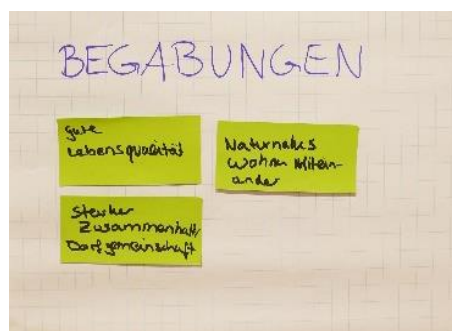 BEGABUNGEN
gute
Lebensqualität
Naturnahes
Wohnen Mitein-
ander
Starker
Zusammenhalt
Dorfgemeinschaft